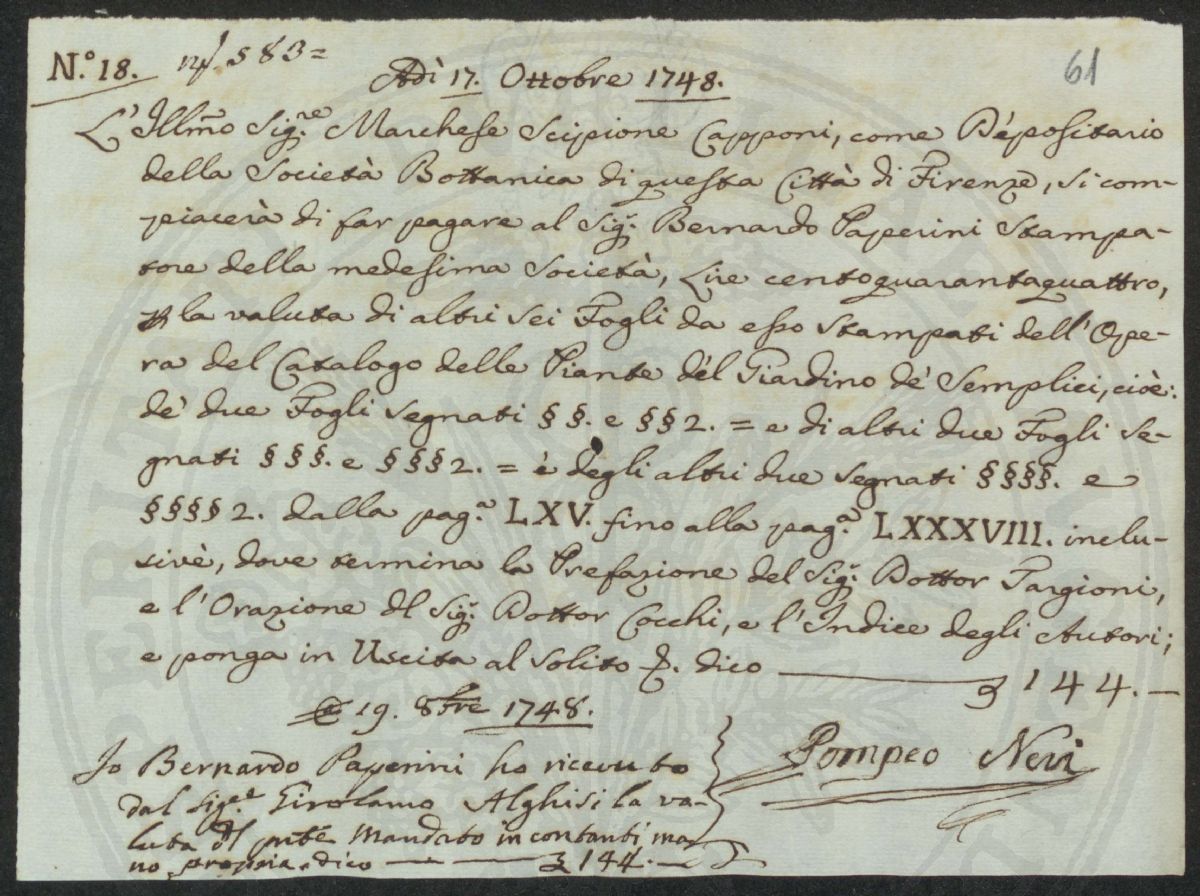 N.º 18. 583=
61
Adì 17. Ottobre 1748.
L'Illmo Sig.re Marchese Scipione Capponi, come Depositario
della Società Bottanica di questa Città di Firenze, si com-
piacerà di far pagare al Sig.r Bernardo Paperini Stampa-
tore della medesima Società, Lire centoquarantaquattro,
la valuta di altri sei Fogli da esso stampati dell'Ope-
ra del Catalogo delle Piante del Giardino de' Semplici, cioè:
de' due Fogli segnati §§. e §§2. = e di altri due Fogli se-
gnati §§§. e §§§2. = è degli altri due segnati §§§§. e
§§§§2. dalla pag.a LXV. fino alla pag.a LXXXVIII. inclu-
sivè, dove termina la Prefazione del Sig.r Dottor Targioni,
e l'Orazione dl Sig.r Dottor Cocchi, e l'Indice degli Autori;
e ponga in Uscita al solito dico 144. —
19. 8bre 1748.
Pompeo Neri
Io Bernardo Paperini ho ricevuto
dal Sig.re Girolamo Alghisi la va-
luta dl pnte Mandato in contanti ma-
no propria dico 144. —